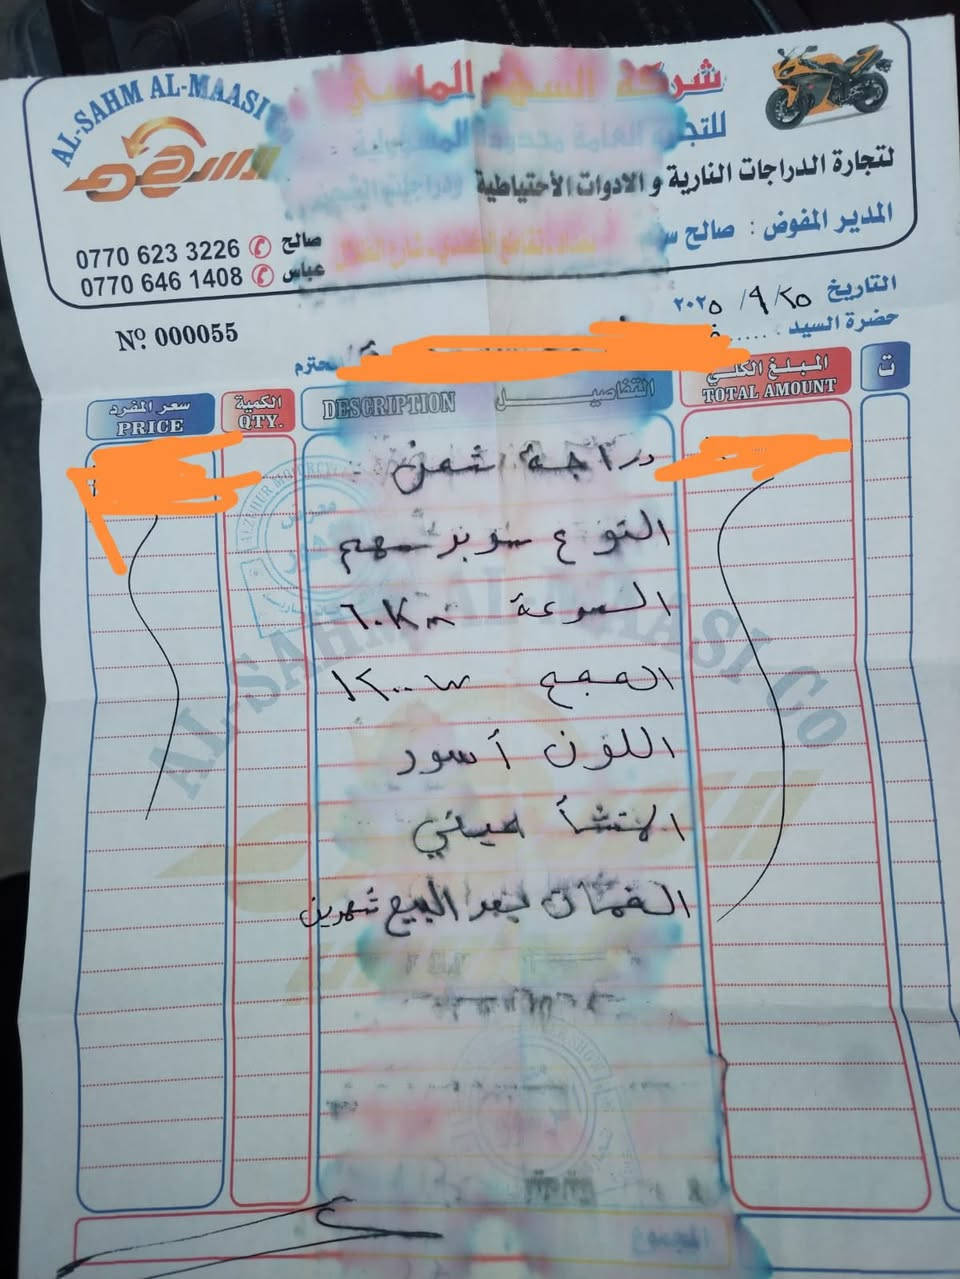 AL-SAHM AL-MAASI Co
شركة السهم الماسي
للتجارة العامة محدودة المسؤولية
لتجارة الدراجات النارية و الادوات الأحتياطية ودراجات الشحن
المدير المفوض : صالح
0770 623 3226 صالح
0770 646 1408 عباس
التاريخ ٢٥/ ٩/ ٢٠٢٥
No. 000055
حضرة السيد
المحترم
ت
المبلغ الكلي
TOTAL AMOUNT
التفاصيل DESCRIPTION
الكمية
QTY.
سعر المفرد
PRICE
دراجة شحن
النوع سوبر سهم
السرعة ٦٠Km
الحجم ١٢٠٠ w
اللون أسود
المنشأ صيني
الضمان بعد البيع شهرين
AL-SAHM AL-MAASI Co
المجموع